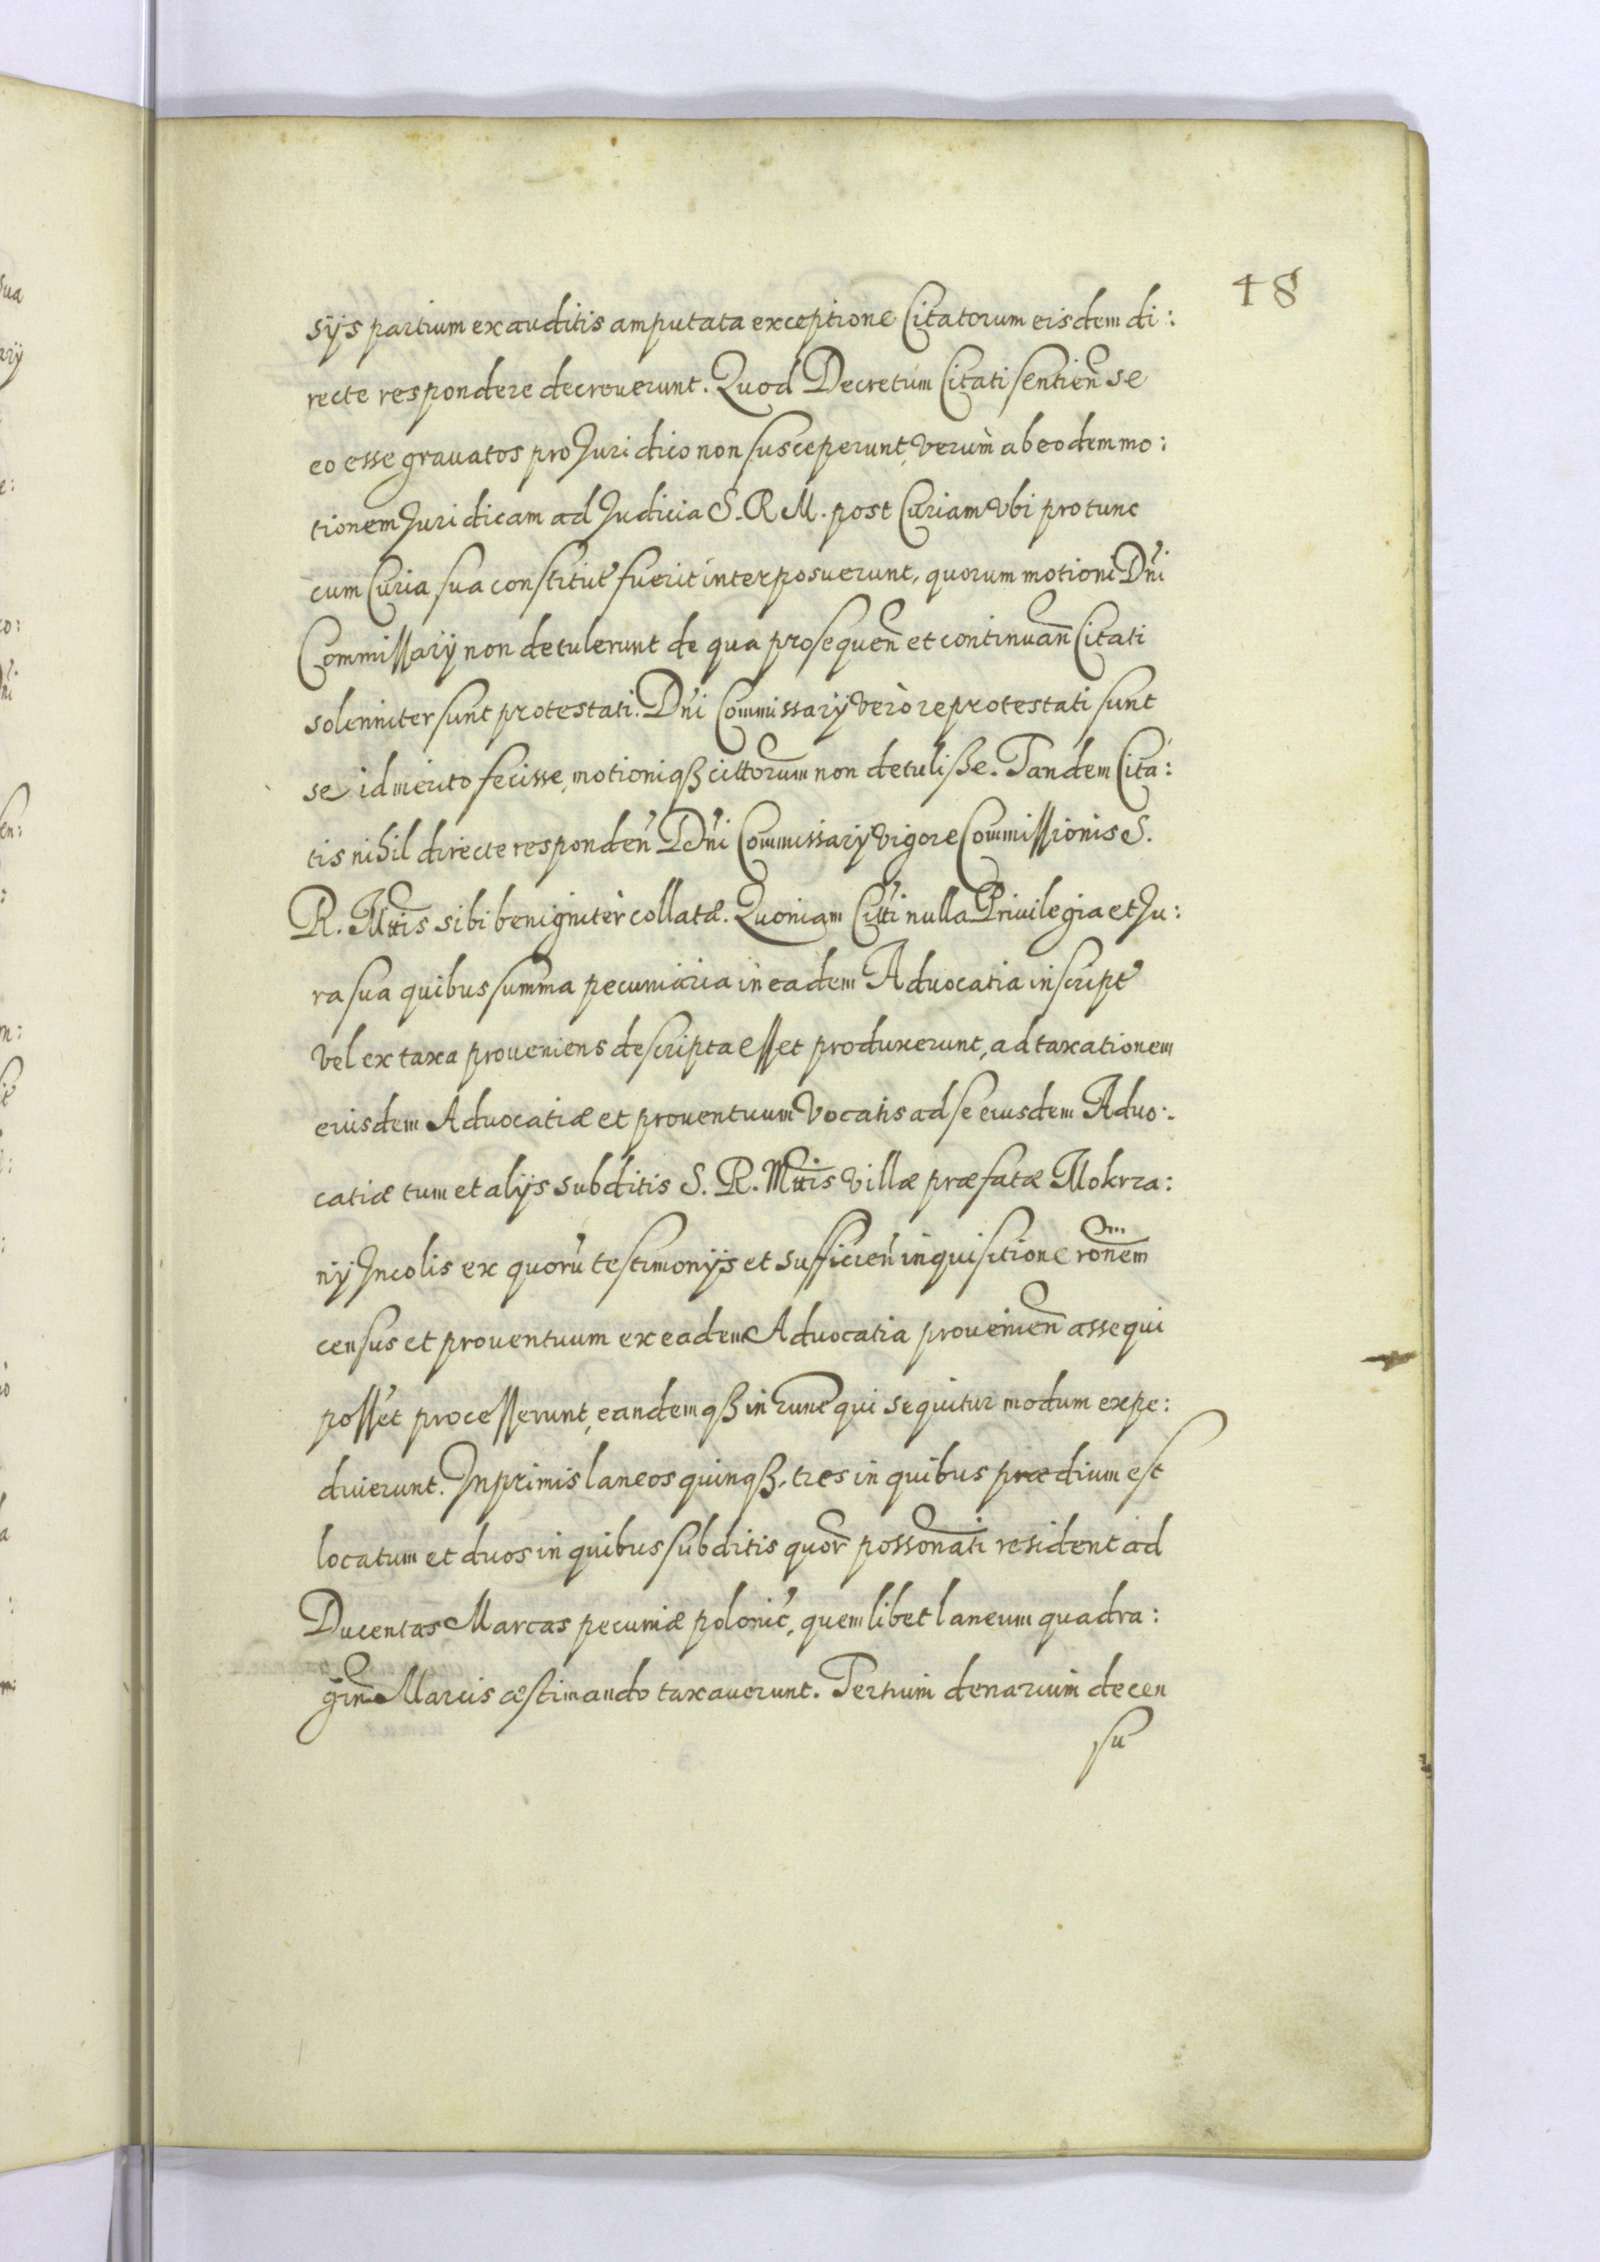 48
sijs partium exauditis amputata exceptione Citatorum eisdem di:
recte respondere decreuerunt. Quod Decretum Citati sentien̄ se
eo esse grauatos pro Juridico non susceperunt, verum̀ ab eodem mo:
tionem Juridicam ad Judicia S. R M. post Curiam vbi pro tunc
cum Curia sua constitut' fuerit interposuerunt, quorum motioni Dn̓i
Commissarij non detulerunt de qua prosequen̄ et continuan̄ Citati
solenniter sunt protestati. Dn̓i Commissarij verò reprotestati sunt
se id merito fecisse, motioniqꝫ citt̄orum non detulisse. Tandem Cita:
tis nihil directe responden̓ Dn̓i Commissarij vigore Commissionis S.
R. Mt̄tis sibi benigniter collatæ. Quoniam Citt̓i nulla Priuilegia et Ju:
ra sua quibus summa pecuniaria in eadem Aduocatia inscript'
vel ex taxa proueniens descripta esset produxerunt, ad taxationem
eiusdem Aduocatiæ et prouentuum vocatis ad se eiusdem Aduo:
catiæ tum et alijs subditis S. R. Mt̄tis villæ præfatæ Mokrza:
nij Incolis ex quoru̓ testimonijs et sufficien̓ inquisitione ron̄em
census et prouentuum ex eadem Aduocatia prouenien̄ assequi
posset processerunt, eandemqꝫ in hunc qui sequitur modum expe:
diuerunt. Inprimis laneos quinqꝫ, tres in quibus prædium est
locatum et duos in quibus subditis quor̄ posson̄ati resident ad
Ducentas Marcas pecuniæ polonic̓, quemlibet laneum quadra:
gin̄ Marcis æstimando taxauerunt. Tertium denarium de cen
su